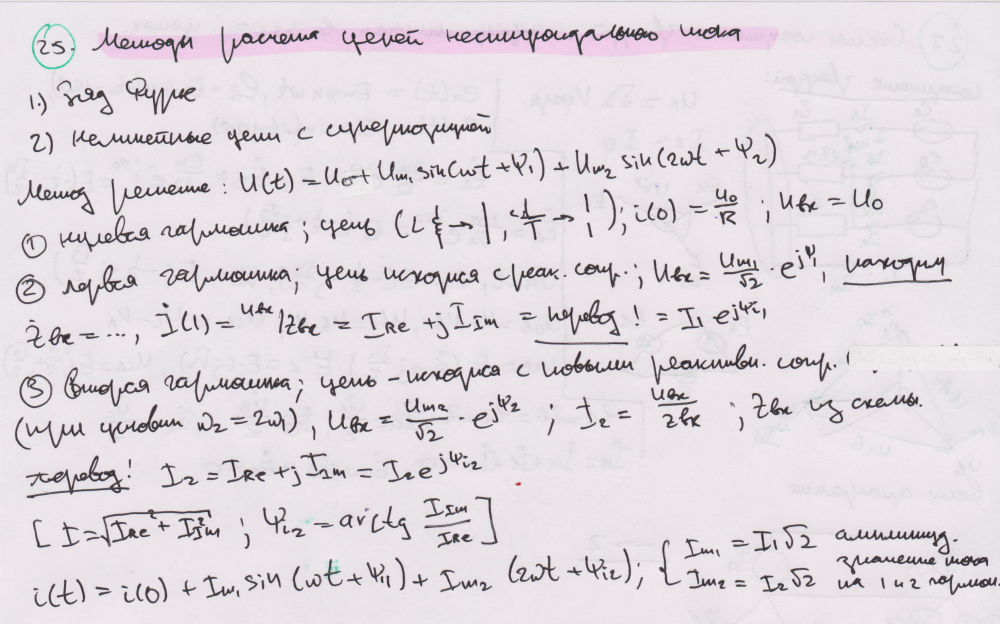 25. Методы расчета цепей несинусоидального тока
1.) Ряд Фурье
2) Нелинейные цепи с суперпозицией
Метод решение: U(t) = U₀ + Uₘ₁ sin(ωt + Ψ₁) + Uₘ₂ sin(2ωt + Ψ₂)
① нулевая гармоника; цепь (L → |, → ); i(0) = U₀/R; Uвх = U₀
② первая гармоника; цепь исходная с реак. сопр.; Uвх = Uₘ₁/√2 · e^jΨ₁, находим
Żвх = ..., İ(1) = Uвх/Zвх = I_Re + jI_Im = перевод! = I₁ e^jΨi₁
③ вторая гармоника; цепь - исходная с новыми реактивн. сопр.!
(при условии ω₂ = 2ω₁), Uвх = Uₘ₂/√2 · e^jΨ₂; I₂ = Uвх/Zвх; Zвх из схемы.
перевод! I₂ = I_Re + jI_Im = I₂e^jΨi₂
[I = √(I_Re² + I_Im²); Ψi₂ = arctg I_Im/I_Re]
i(t) = i(0) + Iₘ₁ sin(ωt + Ψi₁) + Iₘ₂ (2ωt + Ψi₂); { Iₘ₁ = I₁√2 амплитуд.
Iₘ₂ = I₂√2 значение тока
на 1 и 2 гармон.